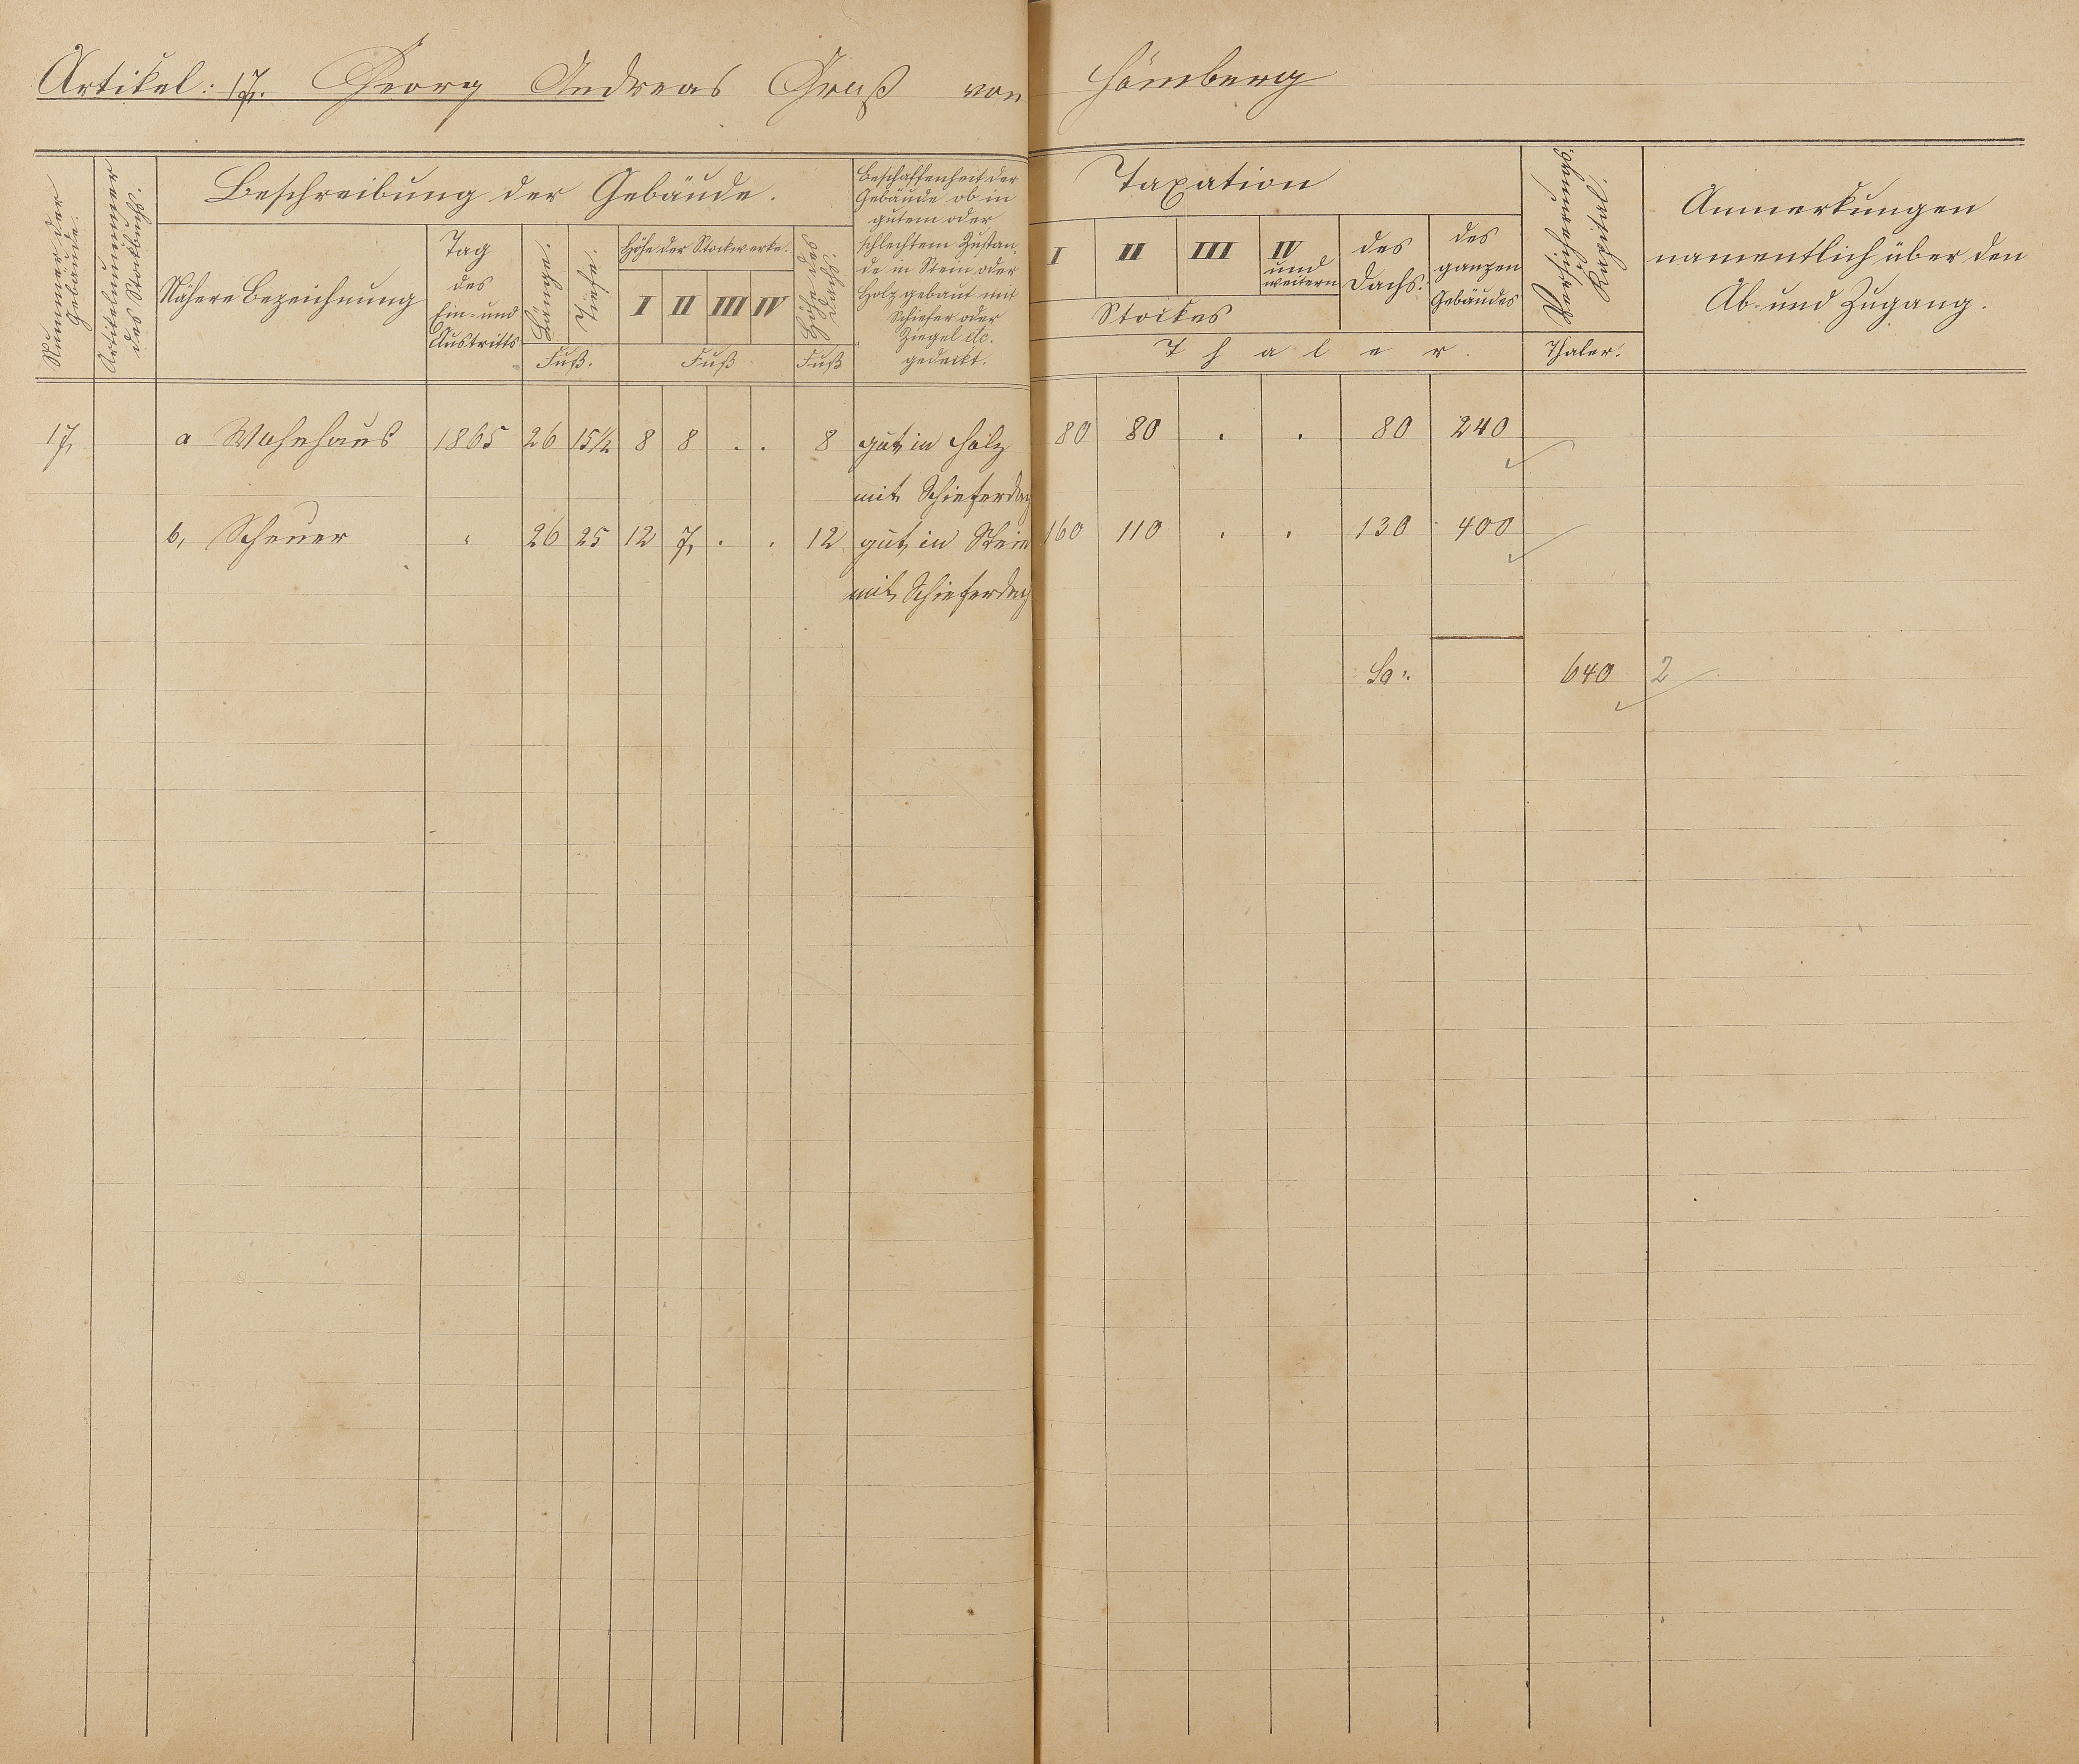 Artikel: 17. Georg Andreas Gruß von Hömberg
Nummer der Gebäude.
Artikelnummer des Stockbuchs.
Beschreibung der Gebäude.
Nähere Bezeichnung
Tag
des
Ein- und
Austritts
Länge.
Tiefe.
Fuß.
Höhe der Stockwerke.
I II III IV
Fuß
Höhe des Dachs.
Fuß
Beschaffenheit der
Gebäude ob in
gutem oder
schlechtem Zustan-
de in Stein oder
Holz gebaut mit
Schiefer oder
Ziegel etc.
gedeckt.
Taxation
I II III IV
und
weitern
Stockes
des
Dachs.
des
ganzen
Gebäudes
Thaler.
Versicherungs Kapital.
Thaler.
Anmerkungen
namentlich über den
Ab- und Zugang.
17, a Wohnhaus 1865 26 15½ 8 8 . . 8 gut, in Holz 80 80 . . 80 240
mit Schieferdach
b, Scheuer " 26 25 12 7, . . 12 gut, in Stein 160 110 . . 130 400
mit Schieferdach
Sa: 640 2